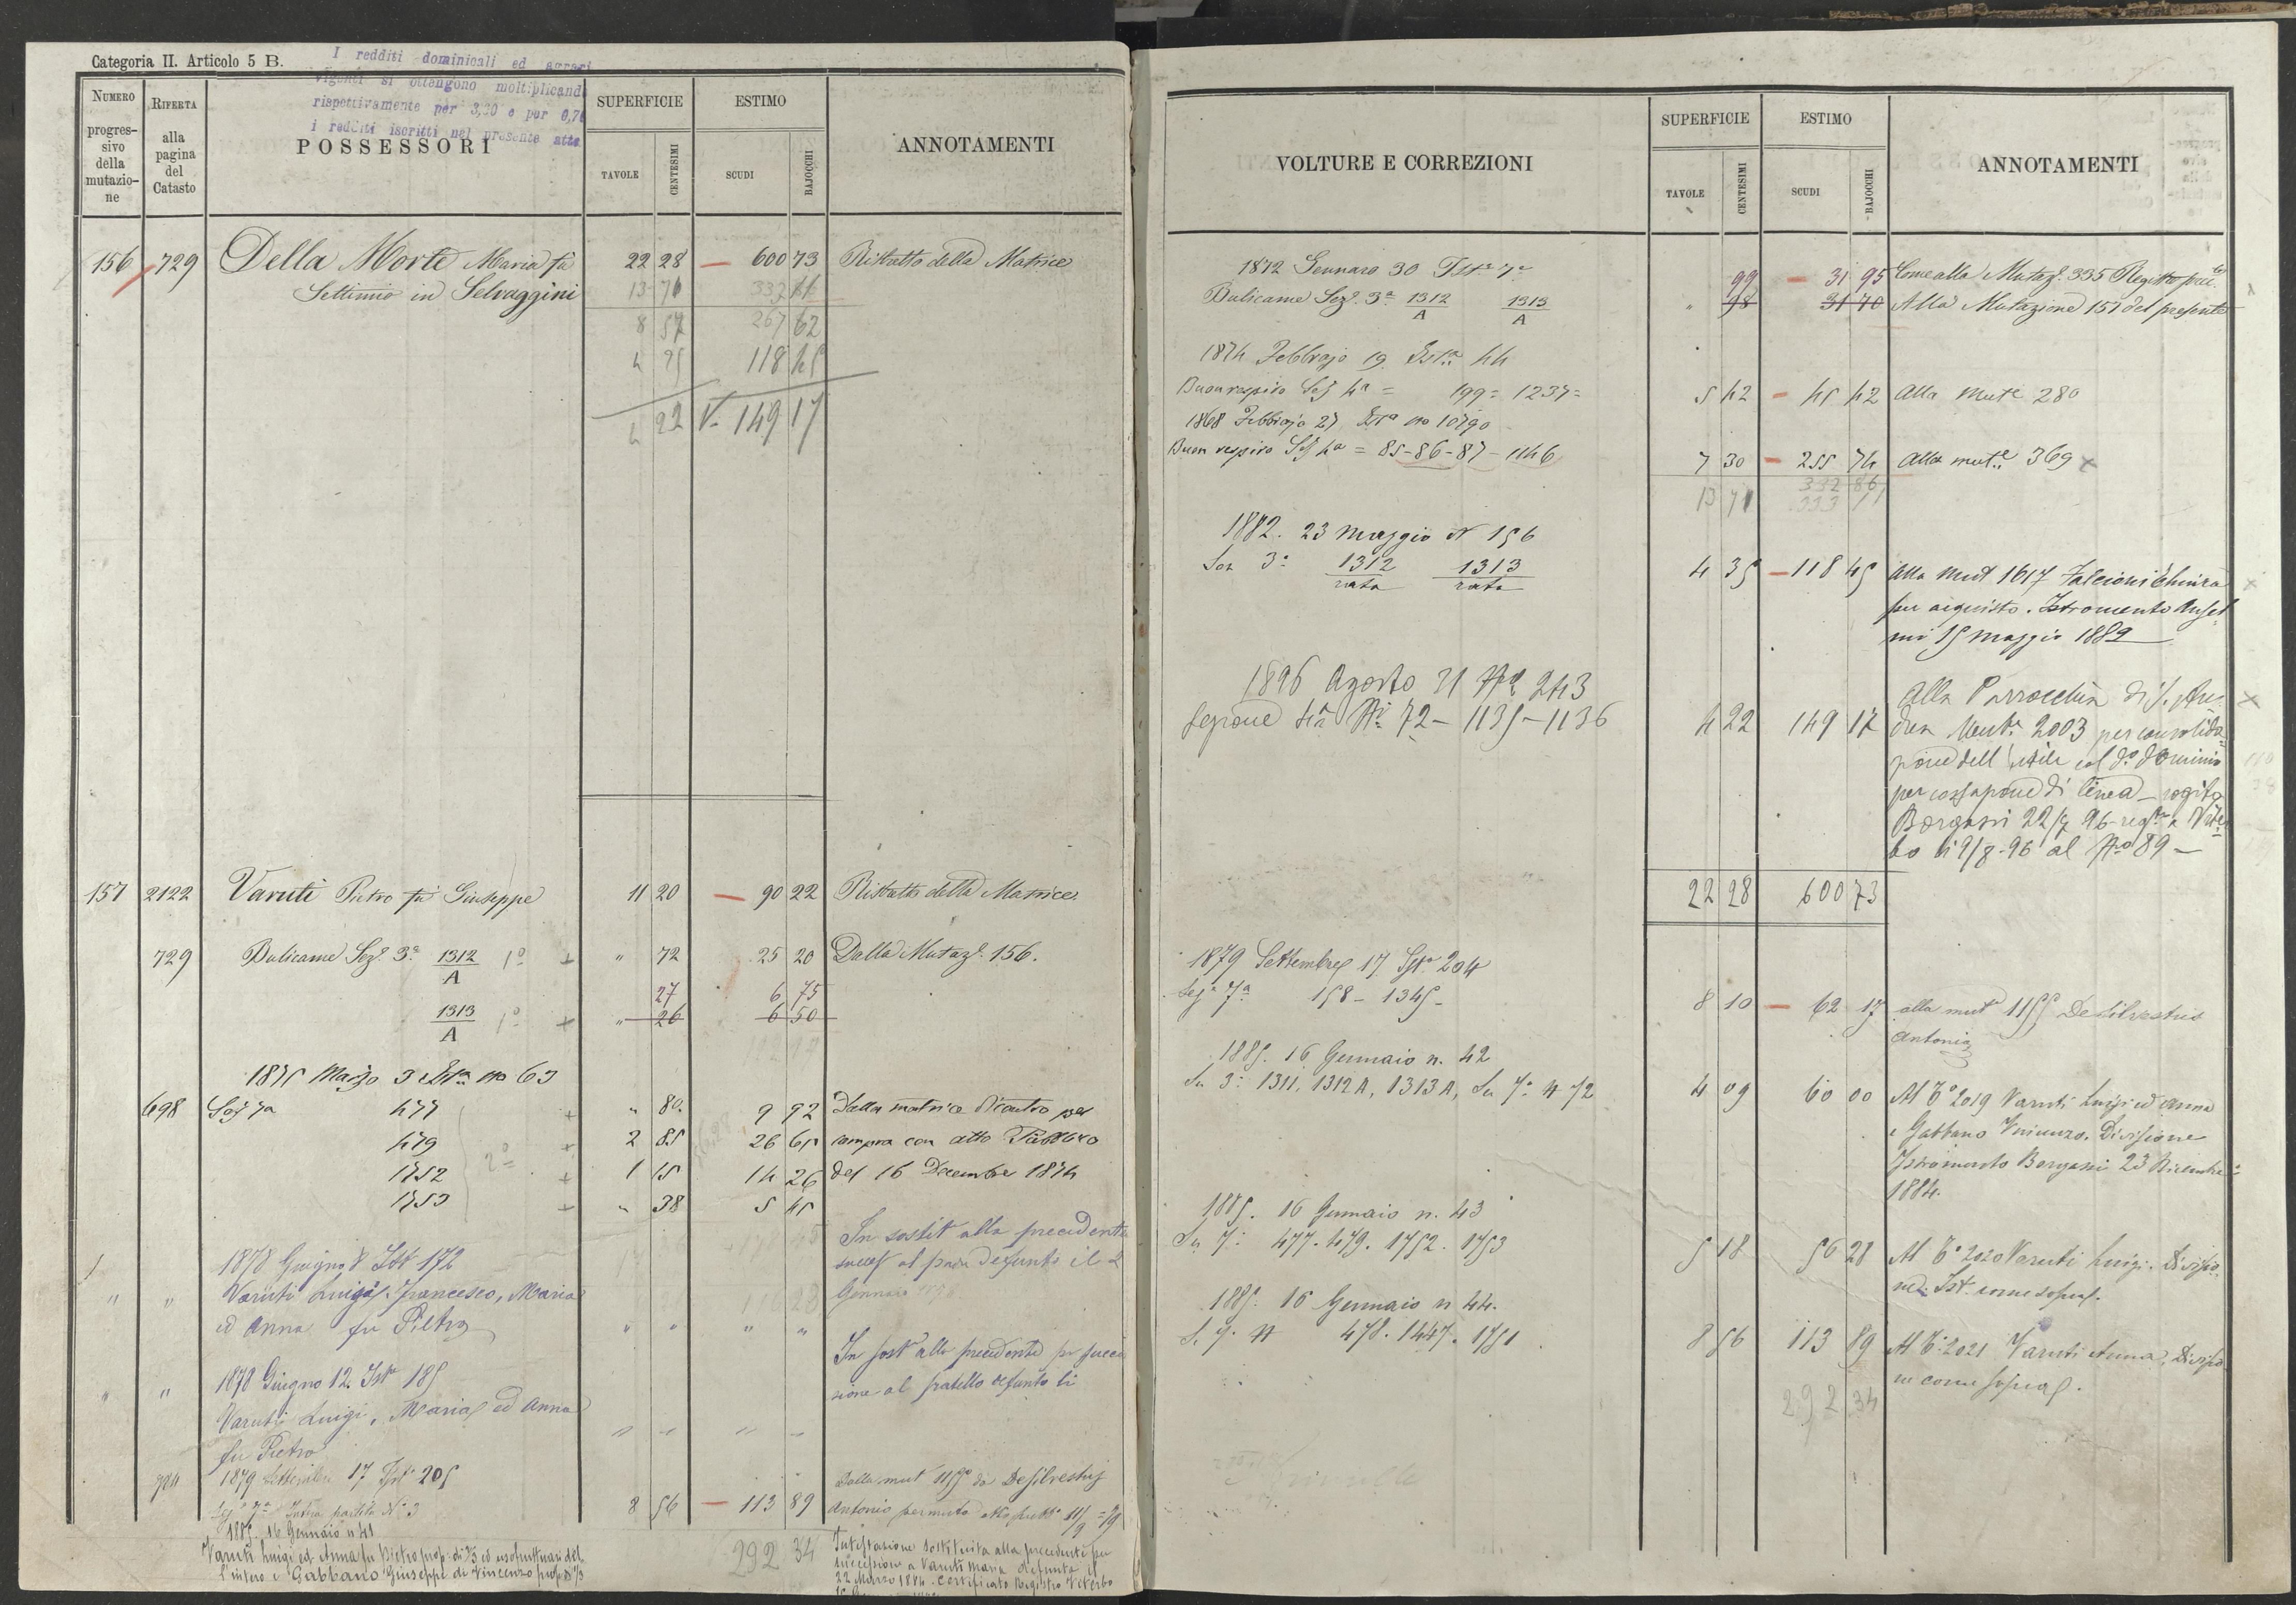 Categoria II. Articolo 5 B.
I redditi dominicali ed agrari
vigenti si ottengono moltiplicando
rispettivamente per 3,20 e per 0,70
i redditi iscritti nel presente atto
NUMERO progressivo della mutazione
RIFERTA alla pagina del Catasto
POSSESSORI
SUPERFICIE
TAVOLE CENTESIMI
ESTIMO
SCUDI BAJOCCHI
ANNOTAMENTI
156 729 Della Morte Maria fu 22 28 600 73 Ristretto della Matrice
Settimio in Selvaggini 13 71
8 57 267 62
118 45
4 22 149 17
157 2122 Varuti Pietro fu Giuseppe 11 20 90 22 Ristretto della Matrice
729 Bulicame Sez. 3a 1312/A 1o + " 72 25 20 Dalla Mutaz. 156.
27 6 75
1313/A 1o + " 26 6 50
1875 Marzo 3 Ista no 63
698 Sez 7a 477 + " 80 9 92 Dalla matrice di contro per
479 + 2 85 26 65 compra con atto
1752 2o + 1 15 14 26 del 16 Decembre 1874
1753 + " 38 5 45
In sostit alla precedente
1878 Giugno 8 Ist 172
success al padre defunto il 2
" " Varuti Luigi, Francesco, Maria Gennaio
ed Anna fu Pietro " " " "
In sost alla precedente per succes
1878 Giugno 12. Ist 185 sione al fratello defunto li
" " Varuti Luigi, Maria ed Anna
fu Pietro
1879 Settembre 17 Ist 205 Dalla mut 1155 da Desilvestris
Sez 7a Intera partita No 3 8 56 113 89 Antonio permuta
1885. 16 Gennaio n 41
Varuti Luigi ed Anna fu Pietro prop. di 2/3 ed usofruttuari del 292 34 Intestazione sostituita alla precedente per
l'intero e Gabbano Giuseppe di Vincenzo prop. di 1/3 successione a Varuti Maria defunta il
22 Marzo 1884. Certificato Registro Viterbo
VOLTURE E CORREZIONI
SUPERFICIE
TAVOLE CENTESIMI
ESTIMO
SCUDI BAJOCCHI
ANNOTAMENTI
1872 Gennaro 30 Ista 7a 99 31 95 Come alla Mutaz. 335 Registro
Bulicame Sez. 3a 1312/A 1313/A " 98 31 70 Alla Mutazione 157 del presente
1874 Febbrajo 19 Ista 44
Buonrespiro Sez 4a = 199 = 1237 = 5 42 45 42 Alla Mute 280
1868 Febbrajo 27 Ista no 10790
Buon respiro Sez 4a = 85-86-87-1146 7 30 255 74 Alla mute 369
13 71 332 86
333 11
1882. 23 Maggio N 156
Sez 3a 1312/rata 1313/rata 4 35 118 45 Alla Mut 1617 Falcioni Chiara
per acquisto. Istromento Ansel
mi 15 Maggio 1882
1896 Agosto 31 No 243 Alla Parrocchia di S. An
Sezione 4a Ni 72 - 1135 - 1136 4 22 149 17 drea Mut. 2003 per consolida
zione dell'utile col do dominio
per cessazione di linea - rogito
Borgassi 22/7 96 rega a Viter
bo li 9/8-96 al No 89 -
22 28 600 73
1879 Settembre 17 Ista 204
Sez 7a 158 - 1345 - 8 10 62 17 alla mut 1155 Desilvestris
Antonio
1885. 16 Gennaio n. 42
Sez 3a 1311, 1312A, 1313A, Sez 7a N 72 4 09 60 00 Al Co 2019 Varuti Luigi ed Anna
e Gabbano Vincenzo. Divisione
Istromento Borgassi 23 Dicembre
1884.
1885. 16 Gennaio n. 43
Sez 7a 477. 479. 1752. 1753 5 18 56 28 Al Co 2020 Varuti Luigi. Divisio
ne. Ist. come sopra.
1885. 16 Gennaio n 44.
S. 7. N 478. 1447. 1751 8 56 113 89 Al Co 2021 Varuti Anna. Divisio
ne come sopra.
292 34